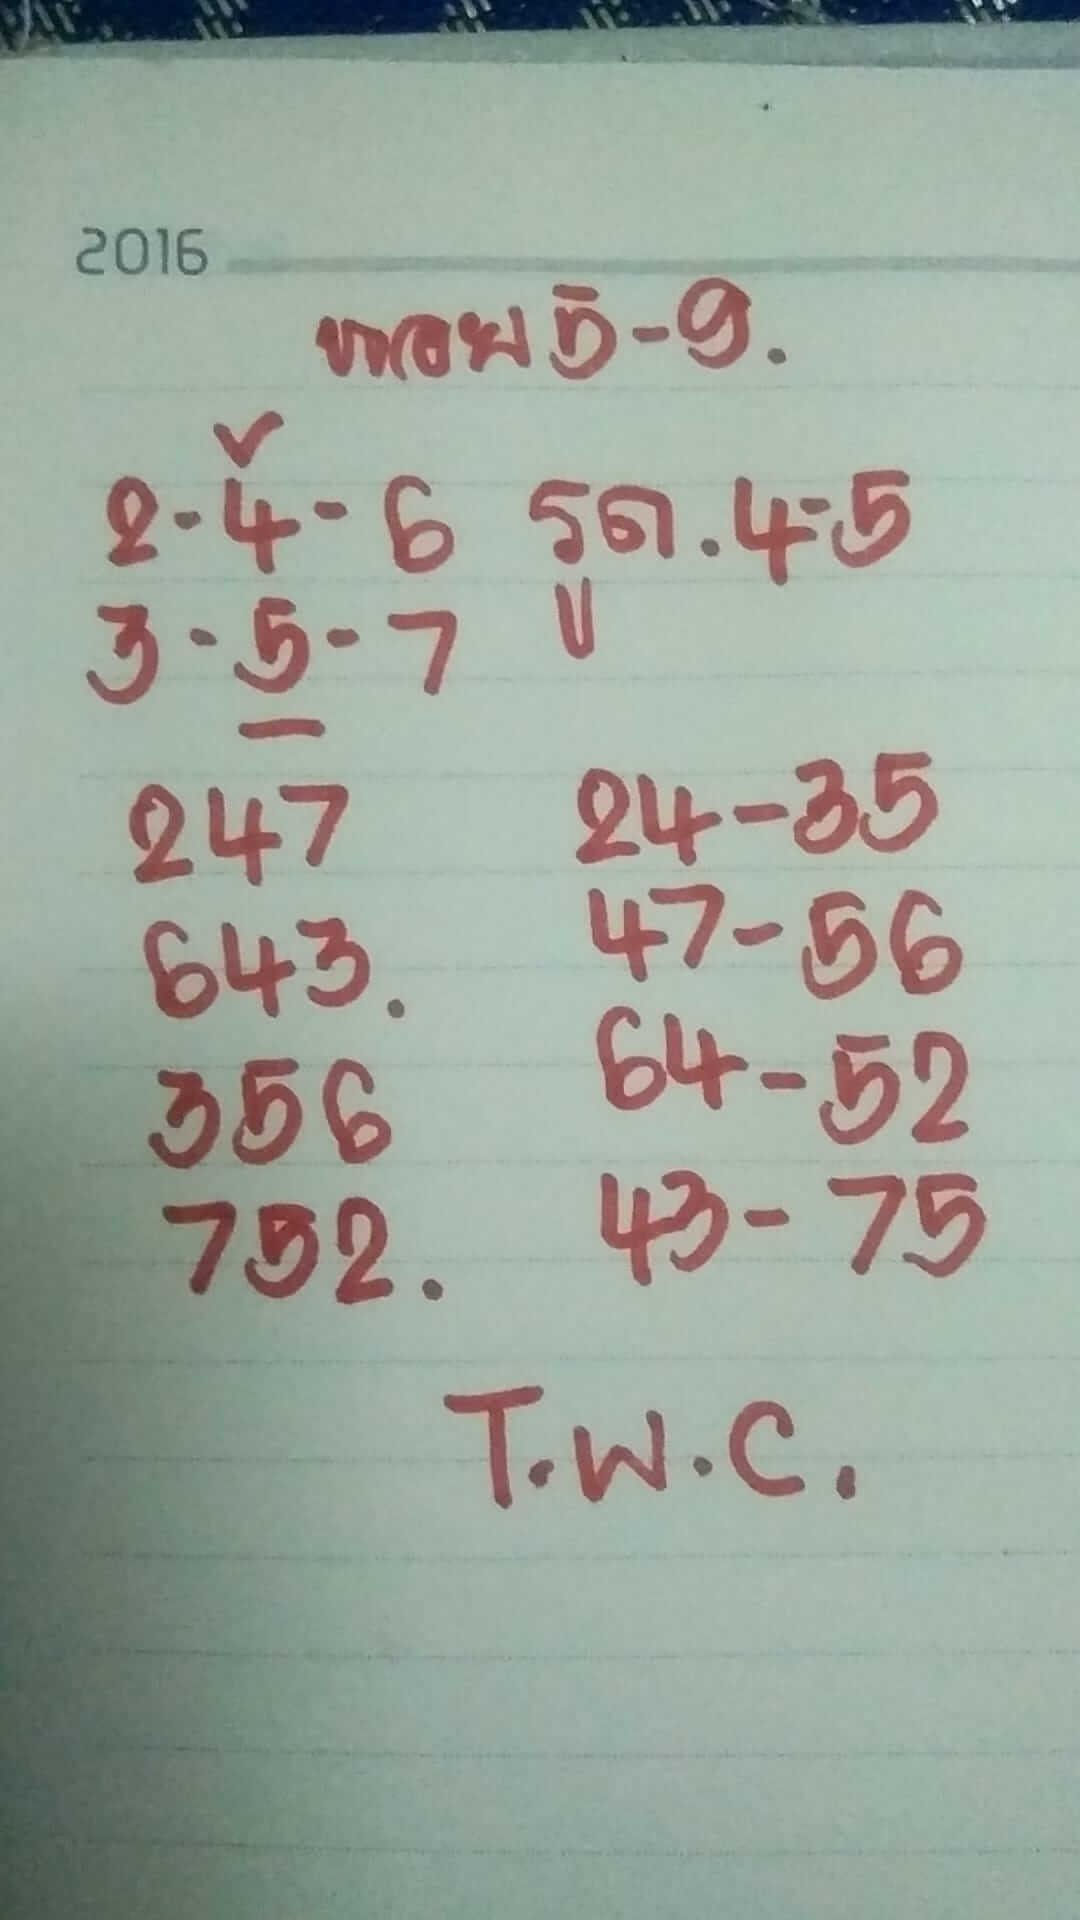 2016
ฮานอย 5-9.
2-4-6 รูด.4-5
3-5-7
247 24-35
643. 47-56
356 64-52
752. 43-75
T.W.C.